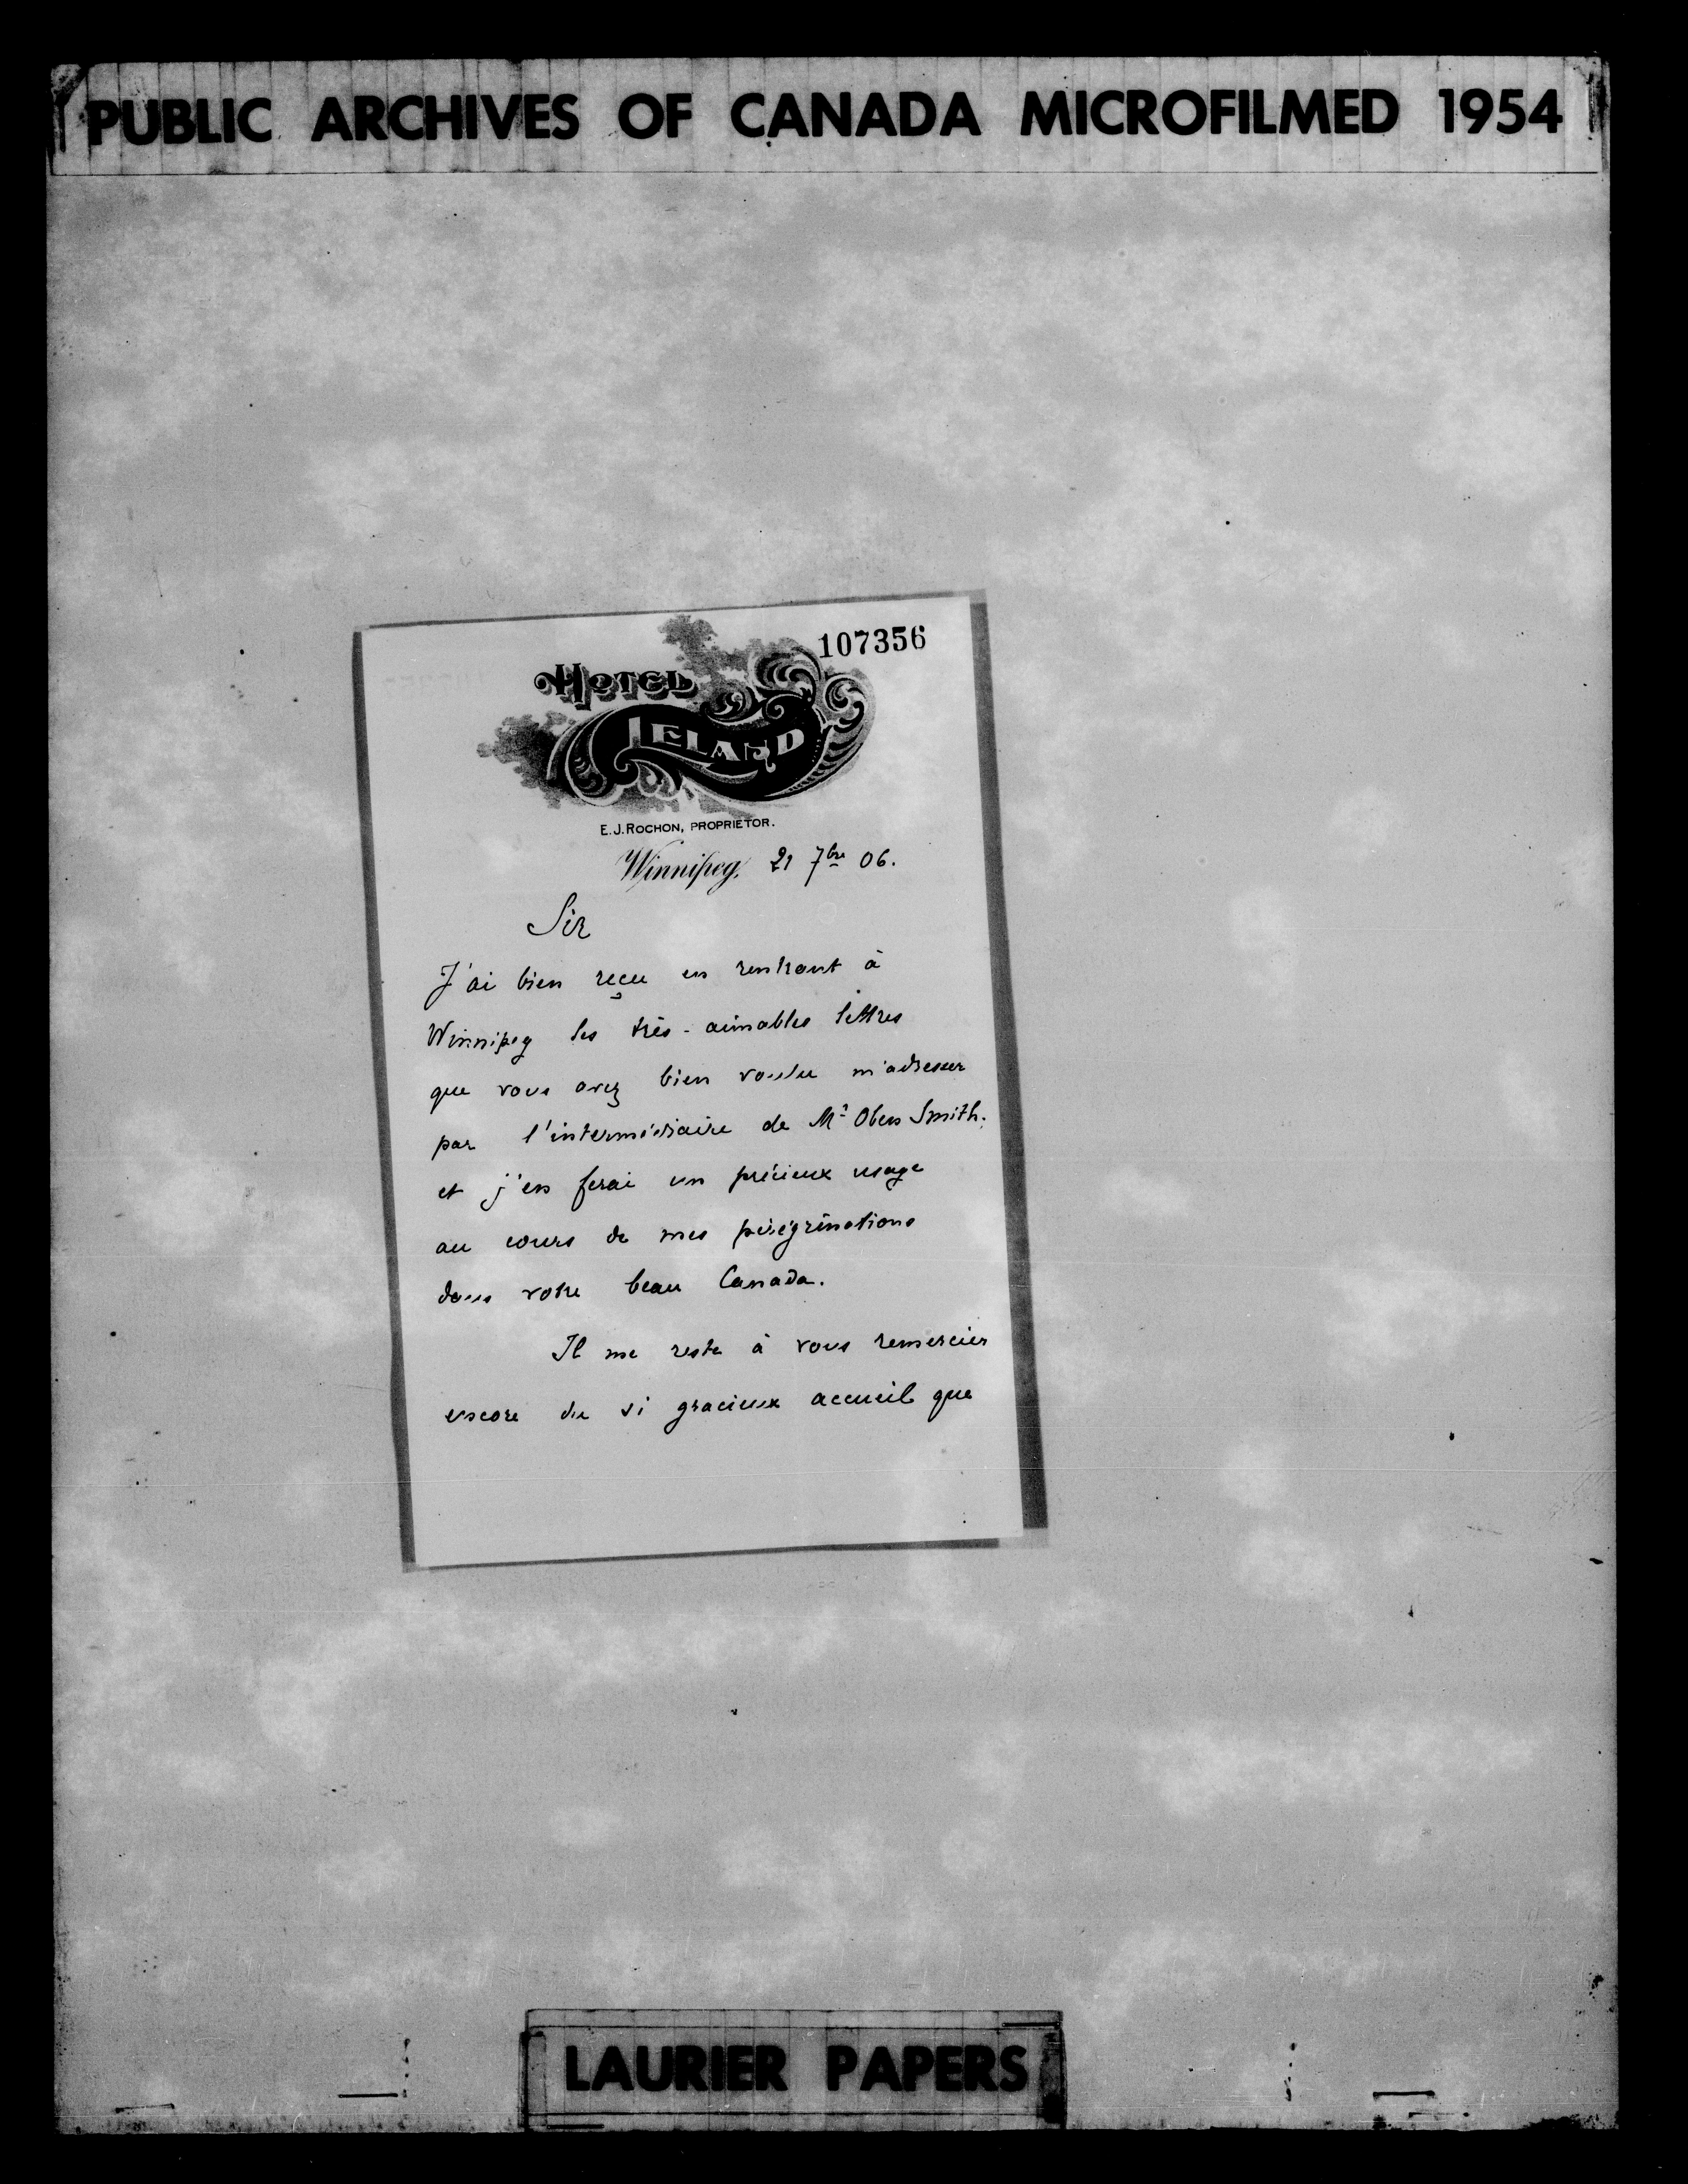 PUBLIC ARCHIVES OF CANADA MICROFILMED 1954
107356
HOTEL
LELAND
E. J. ROCHON, PROPRIETOR.
Winnipeg, 21 7bre 06.
Sir
J'ai bien reçu en rentrant à
Winnipeg les très-aimables lettres
que vous avez bien voulu m'adresser
par l'intermédiaire de Mr Oben Smith.
et j'en ferai un précieux usage
au cours de mes pérégrinations
dans votre beau Canada.
Il me reste à vous remercier
encore du si gracieux accueil que
LAURIER PAPERS